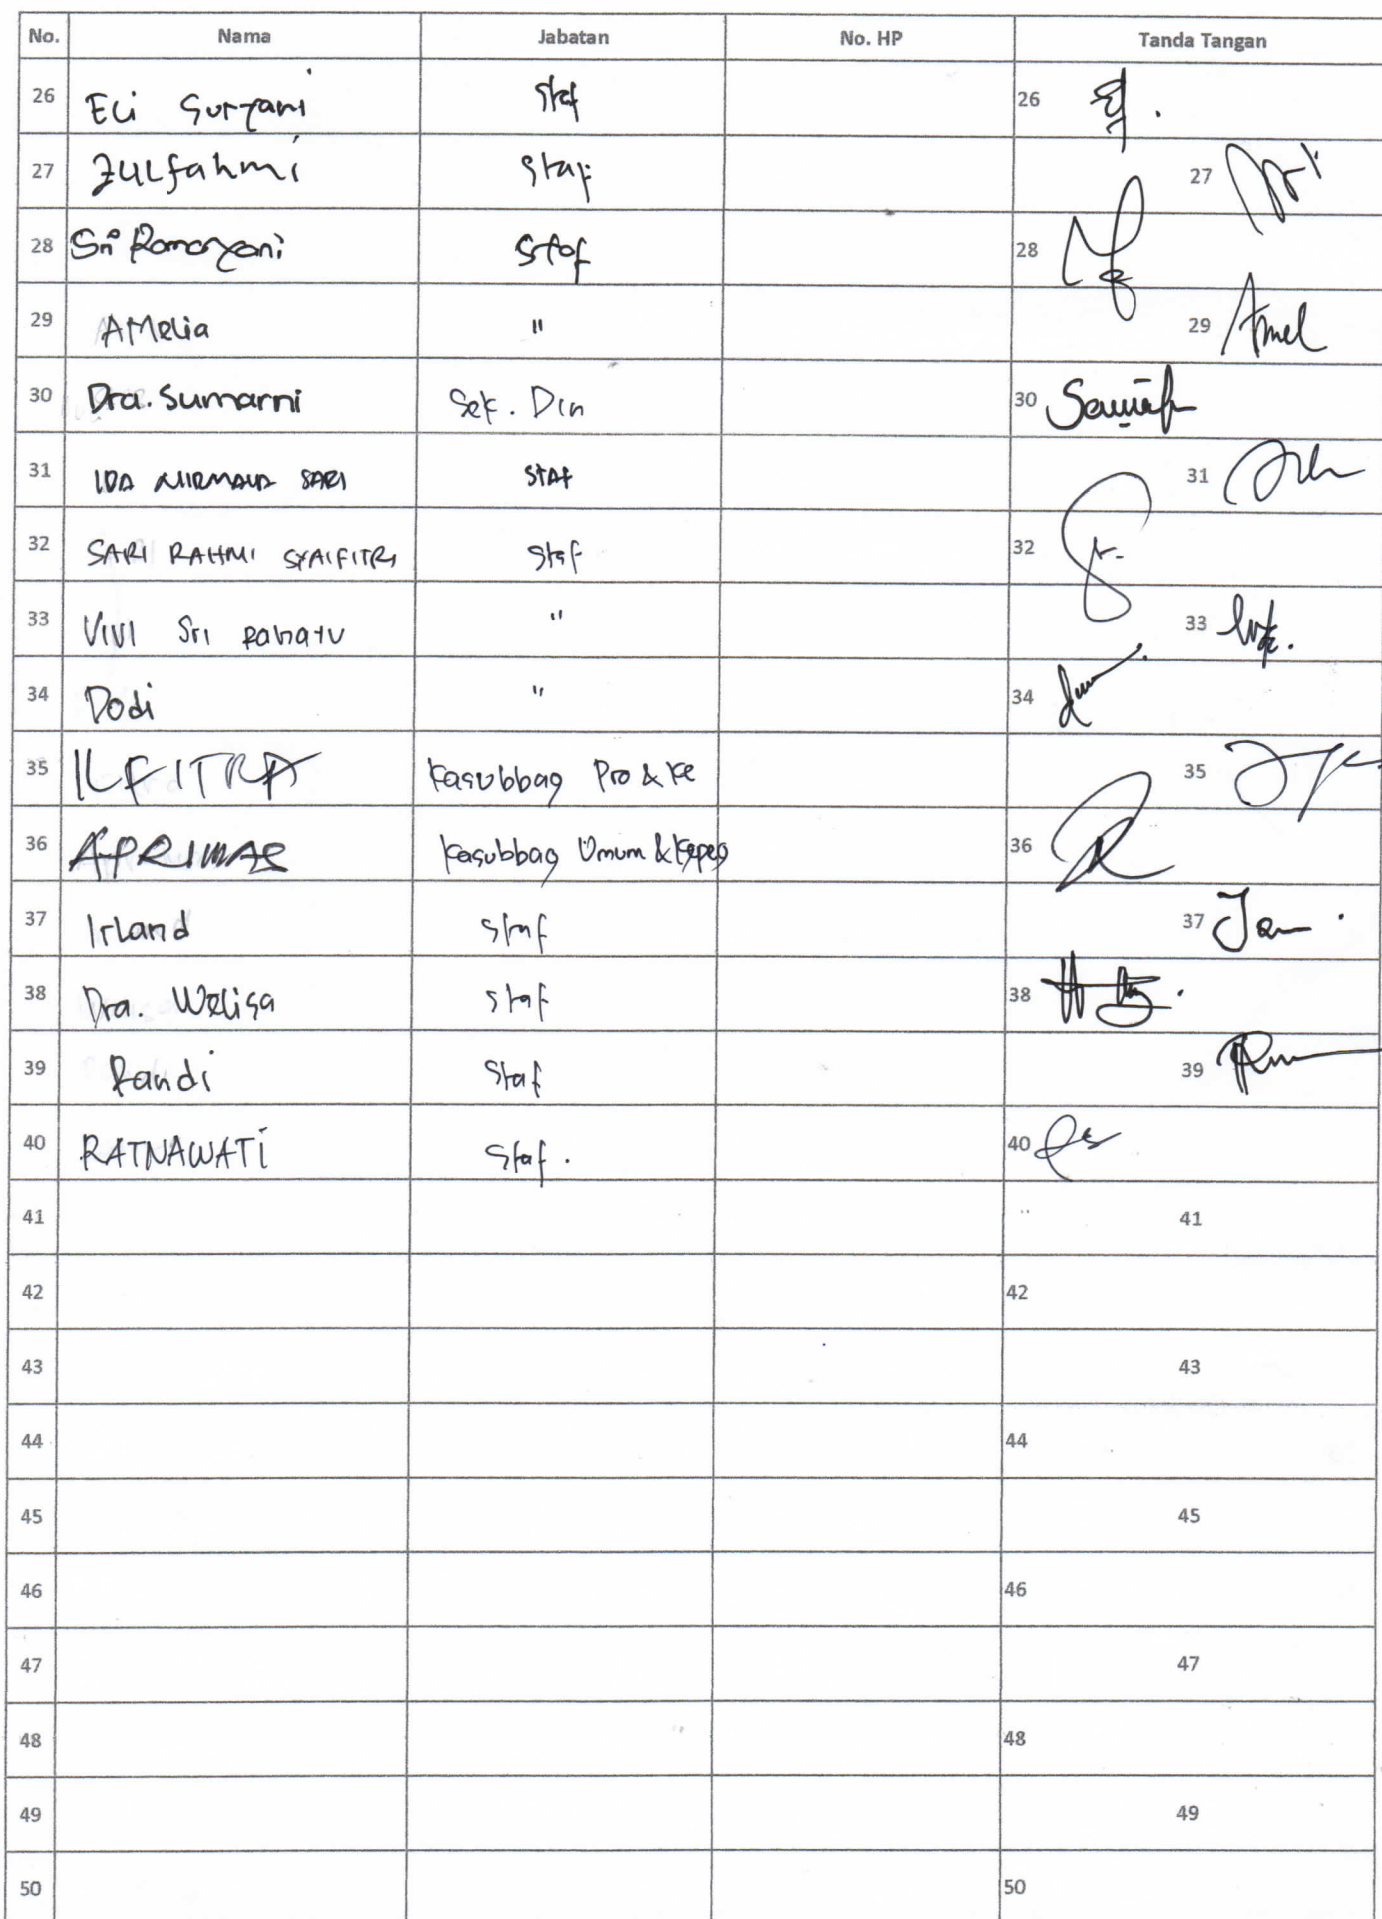 No. Nama Jabatan No. HP Tanda Tangan
26 Eli Suryani Staf 26
27 Zulfahmi Staf 27
28 Sri Ramayani Staf 28
29 AMelia " 29 Amel
30 Dra. Sumarni Sek. Din 30
31 IDA NIRMALA SARI STAF 31
32 SARI RAHMI SYAIFITRI Staf 32
33 VIVI Sri Rahayu " 33
34 Dodi " 34
35 ILFITRA Kasubbag Pro & Ke 35
36 APRIMAS Kasubbag Umum & Kepeg 36
37 Irland Staf 37
38 Dra. Welisa Staf 38
39 Randi Staf 39
40 RATNAWATI Staf. 40
41 41
42 42
43 43
44 44
45 45
46 46
47 47
48 48
49 49
50 50